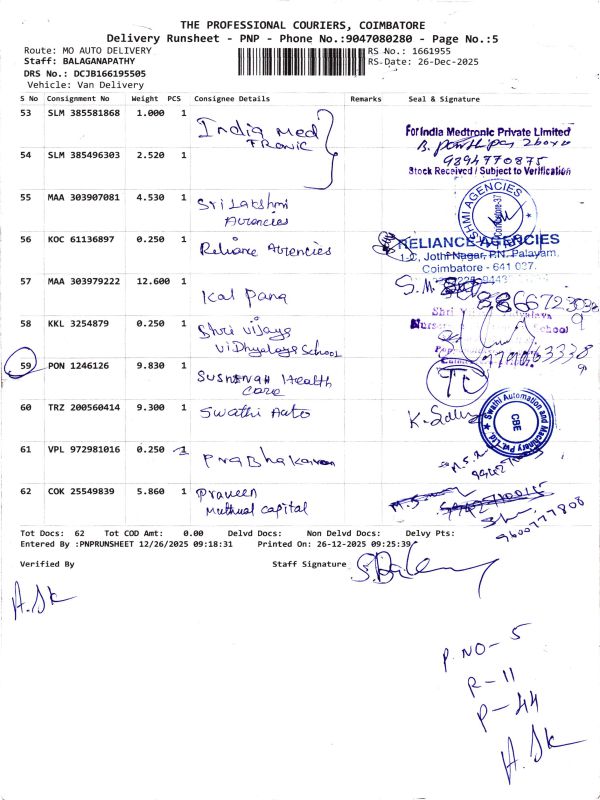 THE PROFESSIONAL COURIERS, COIMBATORE
Delivery Runsheet - PNP - Phone No.:9047080280 - Page No.:5
Route: MO AUTO DELIVERY
RS No.: 1661955
Staff: BALAGANAPATHY
RS Date: 26-Dec-2025
DRS No.: DCJB166195505
Vehicle: Van Delivery
S No Consignment No Weight PCS Consignee Details Remarks Seal & Signature
53 SLM 385581868 1.000 1 India Med
Tronic
For India Medtronic Private Limited
9894770875
Stock Received / Subject to Verification
54 SLM 385496303 2.520 1
55 MAA 303907081 4.530 1 Sri Lakshmi
Agencies
56 KOC 61136897 0.250 1 Reliance Agencies
RELIANCE AGENCIES
1-C, Jothi Nagar, P.N. Palayam,
Coimbatore - 641 037.
57 MAA 303979222 12.600 1 Kal Pana
S.M
58 KKL 3254879 0.250 1 Shri vijaya
viDhyalaya School
59 PON 1246126 9.830 1 Sushenah Health
Care
60 TRZ 200560414 9.300 1 Swathi Auto
Swathi Automation and Machinery Pvt. Ltd.
CBE
61 VPL 972981016 0.250 1 Prabhakaran
62 COK 25549839 5.860 1 Praveen
Muthual Capital
9600777808
Tot Docs: 62 Tot COD Amt: 0.00 Delvd Docs: Non Delvd Docs: Delvy Pts:
Entered By :PNPRUNSHEET 12/26/2025 09:18:31 Printed On: 26-12-2025 09:25:39
Verified By Staff Signature
P.NO-5
R-11
P-44